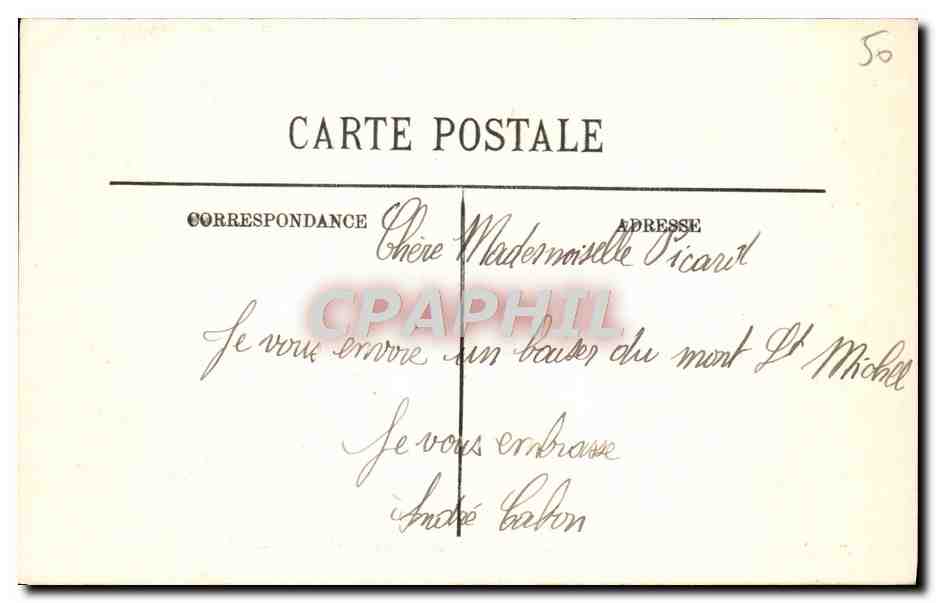 50
CARTE POSTALE
CORRESPONDANCE ADRESSE
Chère Mademoiselle Picard
CPAPHIL
Je vous envoie un baiser du mont St Michel
Je vous embrasse
André Cabon